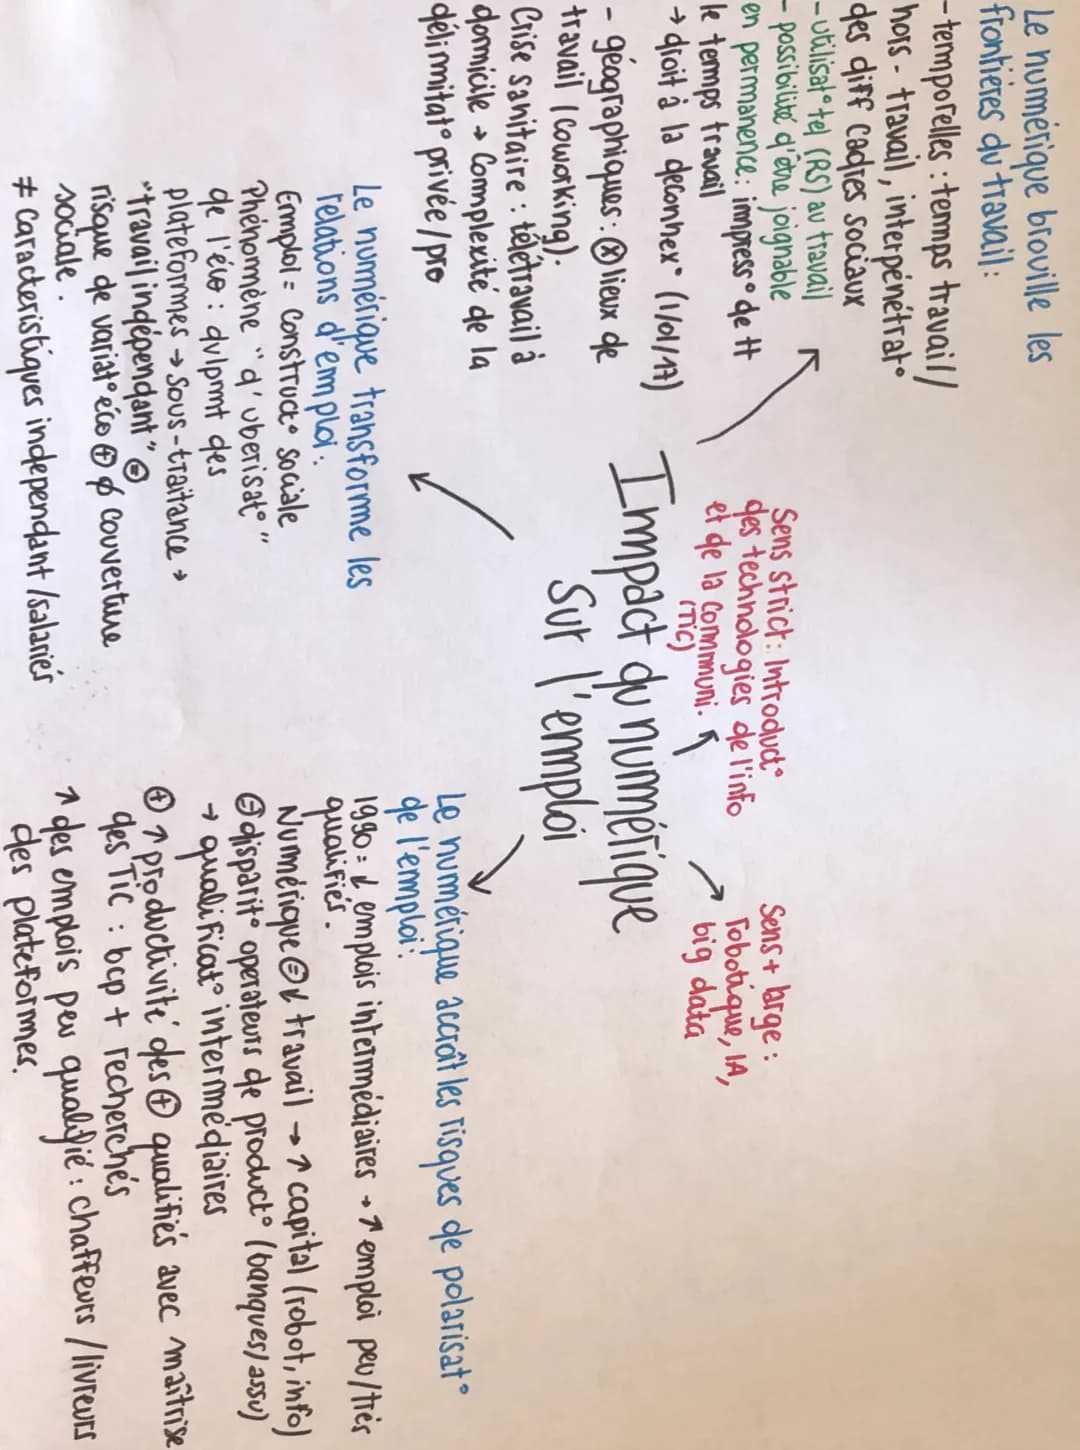 Le numérique brouille les
frontières du travail:
- temporelles : temps travail/
hors - travail, interpénétrat°
des diff cadres sociaux
- utilisat° tel (RS) au travail
- possibilité d'être joignable
en permanence : impress° de tt
le temps travail
→ droit à la deconnex° (1/01/17)
- géographiques : ⊗ lieux de
travail (coworking).
Crise sanitaire : télétravail à
domicile → Complexité de la
délimitat° privée/pro
Sens strict : Introduct°
des technologies de l'info
et de la communi.
(TIC)
Sens + large :
robotique, IA,
big data
Impact du numérique
sur l'emploi
Le numérique transforme les
relations d'emploi :
Emploi = construct° sociale
Phénomène "d'uberisat°"
de l'éco : dvlpmt des
plateformes → sous-traitance →
"travail indépendant" ⊜
risque de variat° éco ⊕ ∅ couverture
sociale.
≠ caracteristiques independant/salariés
Le numérique accroît les risques de polarisat°
de l'emploi :
1990 = ↓ emplois intermédiaires → ↑ emploi peu/très
qualifiés.
Numérique ⊜ ↓ travail → ↑ capital (robot, info)
⊜ disparit° operateurs de product° (banques/assu)
→ qualificat° intermédiaires
⊕ ↑ productivité des ⊕ qualifiés avec maîtrise
des TIC : bcp + recherchés
↑ des emplois peu qualifié : chaffeurs/livreurs
des plateformes.